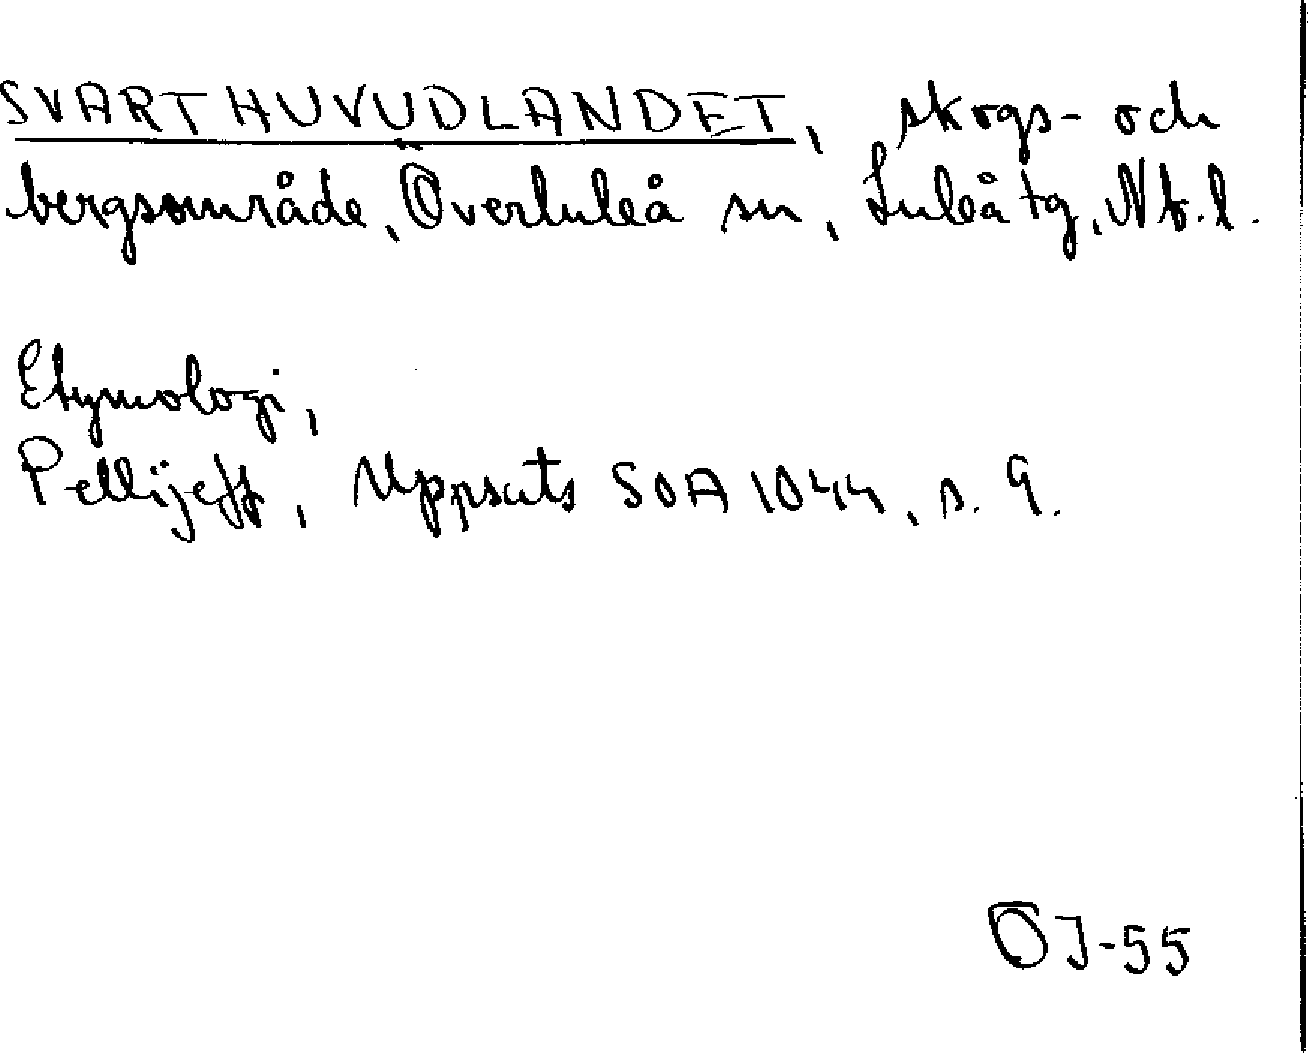 SVARTHUVUDLANDET, skogs- och
bergsområde, Överluleå sn, Luleå tg, Nb.l.
Etymologi,
Pellijeff, Uppsats SOA 1044, s. 9.
ÖJ-55